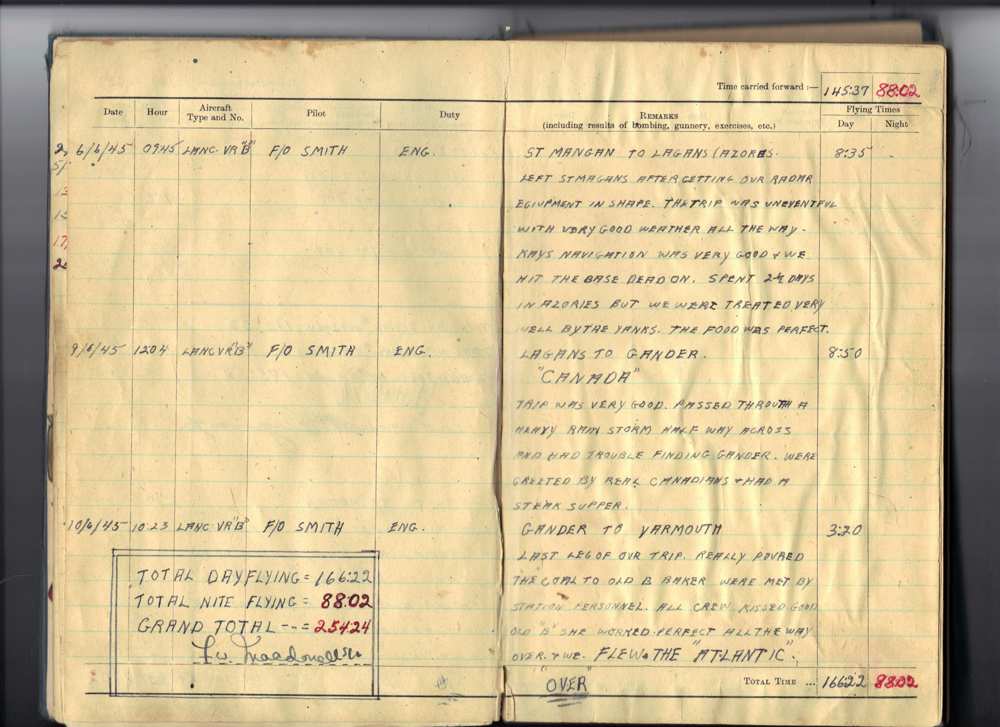 Time carried forward :— 145:37 88:02
Date Hour Aircraft Type and No. Pilot Duty
REMARKS (including results of bombing, gunnery, exercises, etc.) Flying Times Day Night
6/6/45 0945 LANC. VR"B" F/O SMITH ENG. ST MANGAN TO LAGANS (AZORES. 8:35
LEFT ST MAGANS AFTER GETTING OUR RADAR
EQIUPMENT IN SHAPE. THE TRIP WAS UNEVENTFUL
WITH VERY GOOD WEATHER ALL THE WAY.
KAYS NAVIGATION WAS VERY GOOD & WE
HIT THE BASE DEAD ON. SPENT 2½ DAYS
IN AZORIES BUT WE WERE TREATED VERY
WELL BY THE YANKS. THE FOOD WAS PERFECT.
9/6/45 1204 LANC VR"B" F/O SMITH ENG. LAGANS TO GANDER. 8:50
"CANADA"
TRIP WAS VERY GOOD. PASSED THROUTH A
HEAVY RAIN STORM HALF WAY ACROSS
AND HAD TROUBLE FINDING GANDER. WERE
GREETED BY REAL CANADIANS & HAD A
STEAK SUPPER.
10/6/45 10:23 LANC VR"B" F/O SMITH ENG. GANDER TO YARMOUTH 3:20
LAST LEG OF OUR TRIP. REALLY POURED
THE COAL TO OLD B BAKER WERE MET BY
STATION PERSONNEL. ALL CREW KISSED GOOD
OLD "B" SHE WORKED PERFECT ALL THE WAY
OVER. & WE. FLEW THE "ATLANTIC".
"OVER"
TOTAL DAY FLYING = 166:22
TOTAL NITE FLYING = 88:02
GRAND TOTAL -- = 254:24
TOTAL TIME ... 166:22 88:02